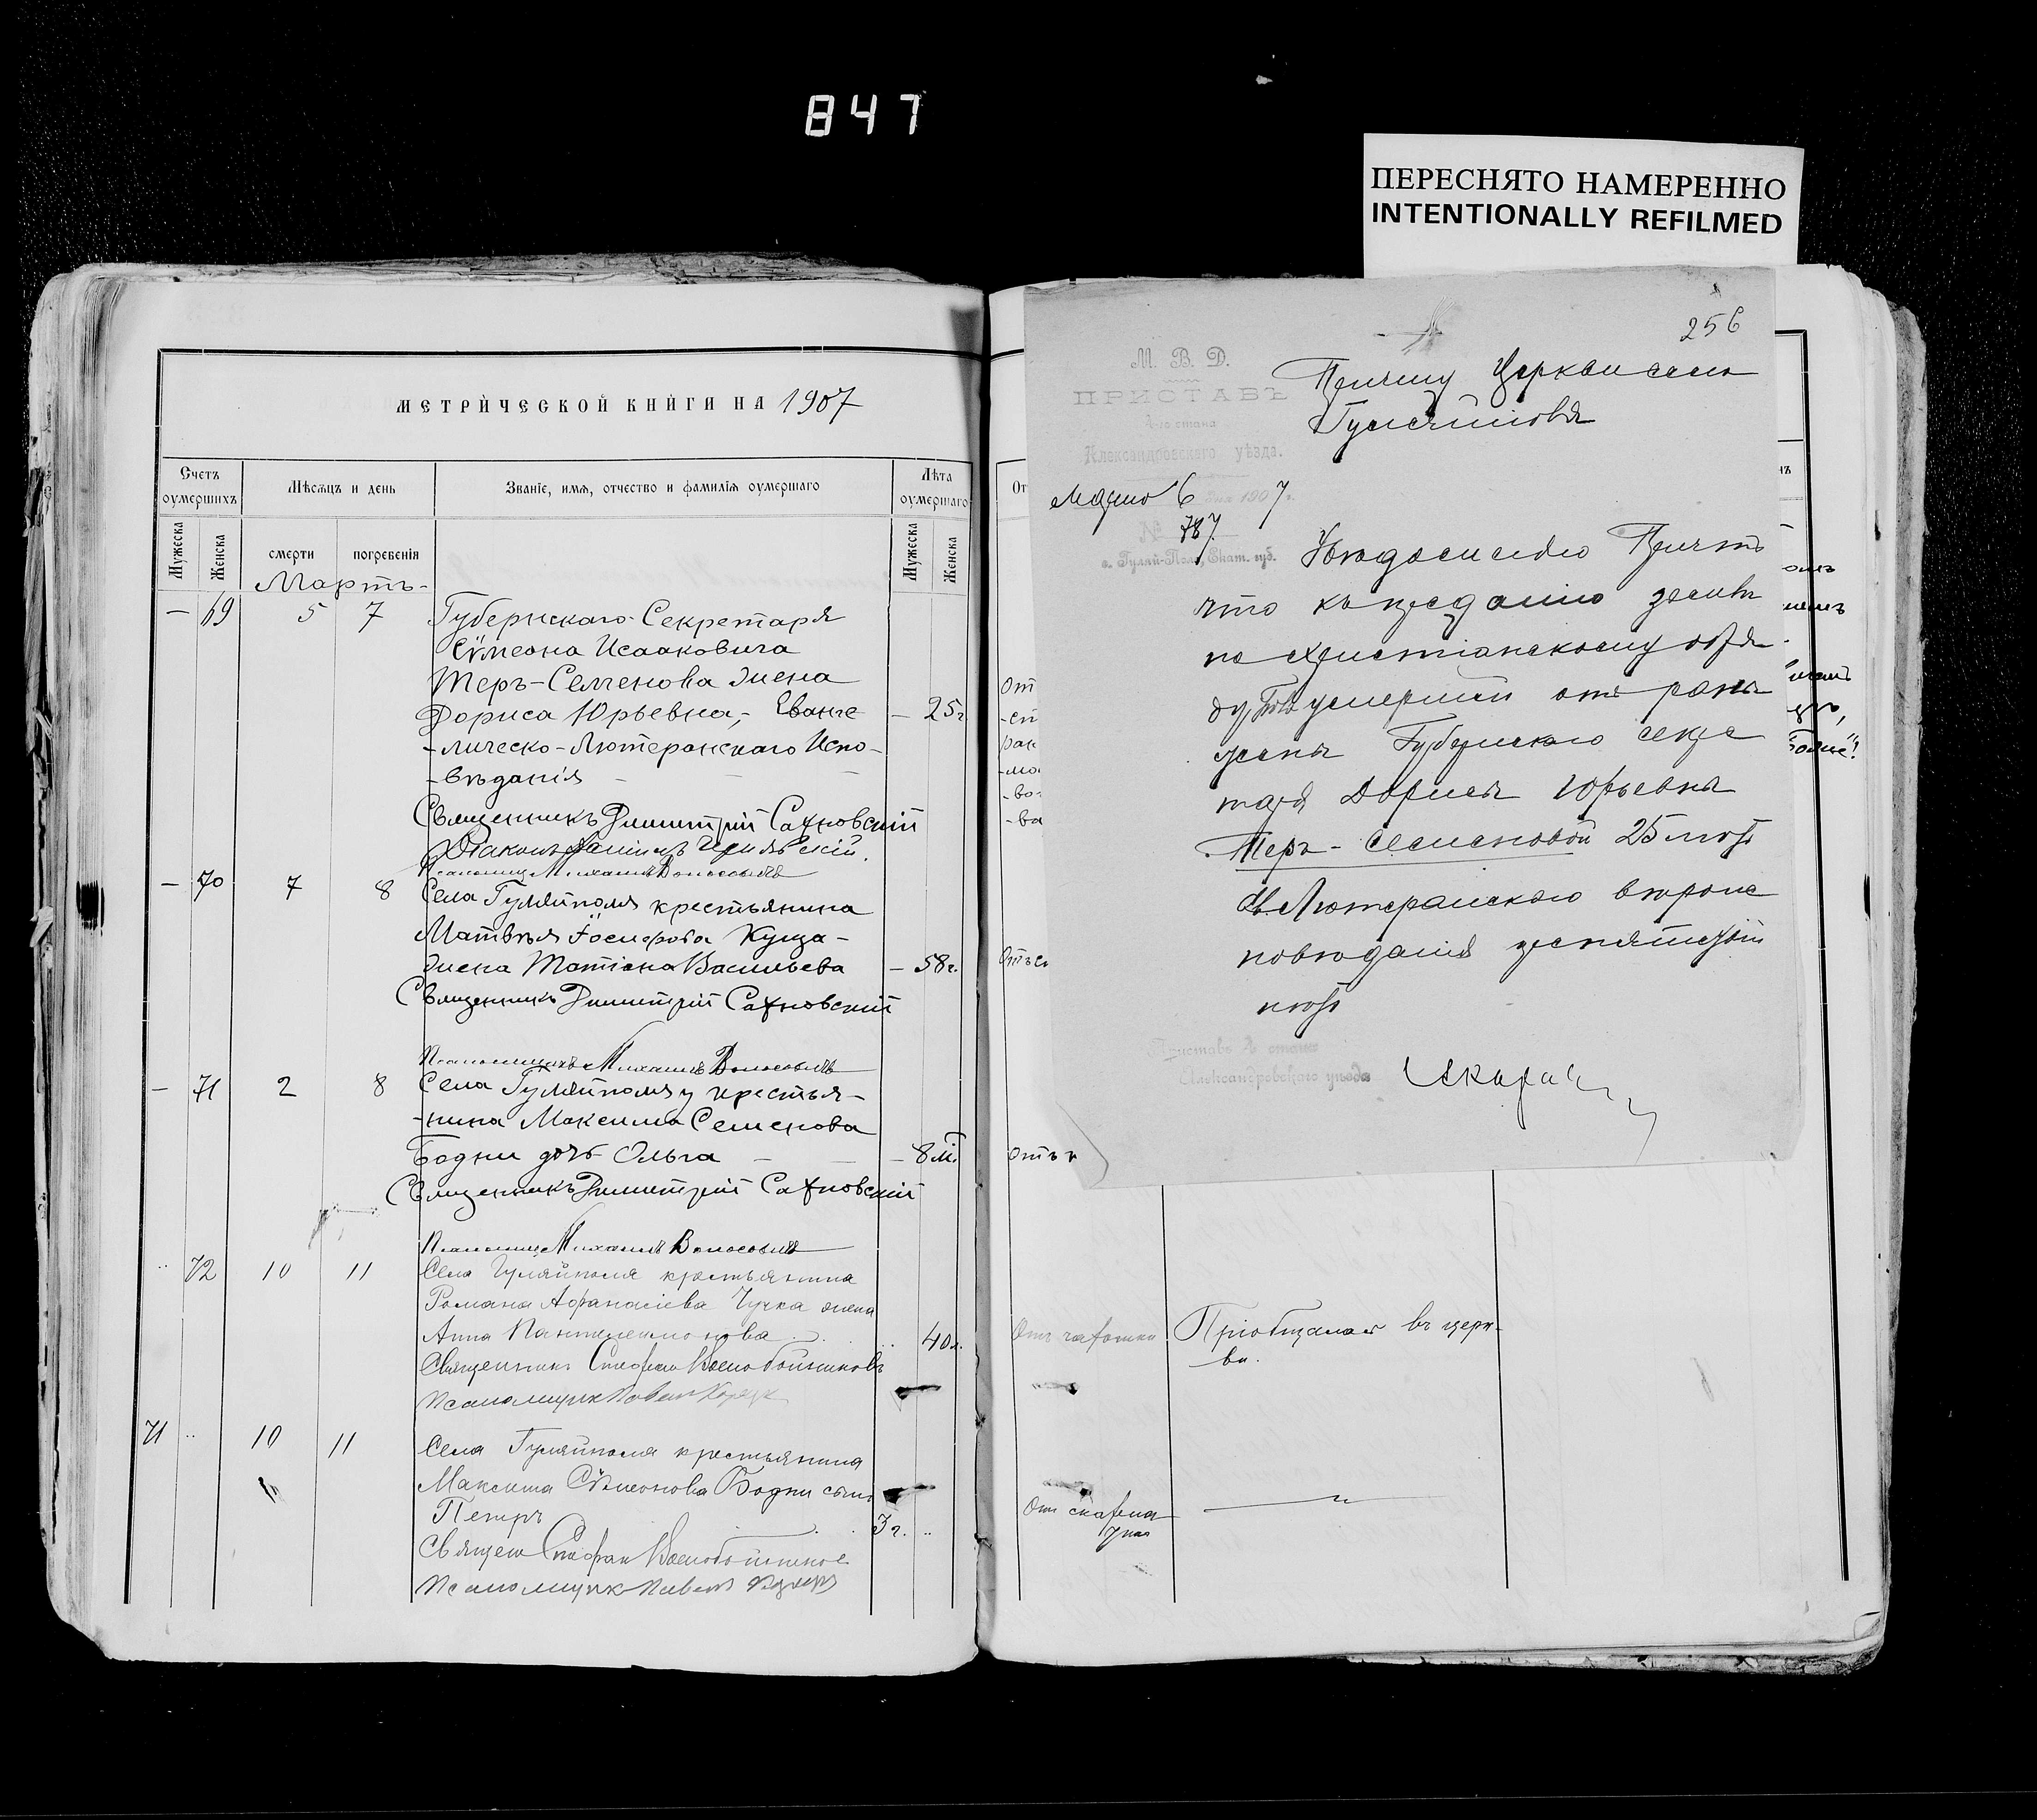 847
ПЕРЕСНЯТО НАМЕРЕННО
INTENTIONALLY REFILMED
МЕТРИ́ЧЕСКОЙ КНИ́ГИ НА 1907
Счетъ оумершихъ
Мѣсяцъ и день
Званіе, имя, отчество и фамилія оумершаго
Лѣта оумершаго
Мужеска
Женска
смерти
погребенія
Мужеска
Женска
Мартъ-
— 69 5 7 Губернскаго Секретаря
Сѵмеона Исааковича
Теръ-Семенова жена
Дориса Юрьевна, Еванге — 25 г.
-лическо-Лютеранскаго Испо-
-вѣданія — — —
Священникъ Димитрій Сахновскій
Діаконъ
Псаломщ. Михаилъ
— 70 7 8 Села Гуляйполя крестьянина
Матвѣя Іосифова Куща-
жена Татіана Васильева — 58 г.
Священникъ Димитрій Сахновскій
Псаломщикъ Михаилъ
— 71 2 8 Села Гуляйполя крестья-
-нина Максима Семенова
Бодни дочь Ольга — — 8 м.
Священникъ Димитрій Сахновскій
Псаломщ. Михаилъ
72 10 11 Села Гуляйполя крестьянина
Романа Афанасіева Чучка жена
Анна Пантелеимонова 40 л.
Священникъ Стефан
Псаломщик Павелъ
71 10 11 Села Гуляйполя крестьянина
Максима Сѵмеонова Бодни сынъ
Петръ 3 г.
Священ Стефан
Псаломщик Павелъ
От
От
-ст
ран
-мо
-во
-ва
Отъ
Отъ
Отъ чахотки Пріобщалась въ церк-
ви.
Отъ скарла
256
М. В. Д.
ПРИСТАВЪ
4-го стана
Александровскаго уѣзда.
Марта 6 дня 1907 г.
№ 787
с. Гуляй-Поле, Екат. губ.
Причту Церкви села
Гуляйполя
Увѣдомляю Причтъ
что къ преданію землѣ
по христіанскому обря
ду умершей отъ раны
жены Губернскаго секре
таря Дорисы Юрьевны
Теръ-Семеновой 25 лѣтъ
Лютеранскаго вѣроис
повѣданія препятствій
нѣтъ
Приставъ 4 стана
Александровскаго уѣзда